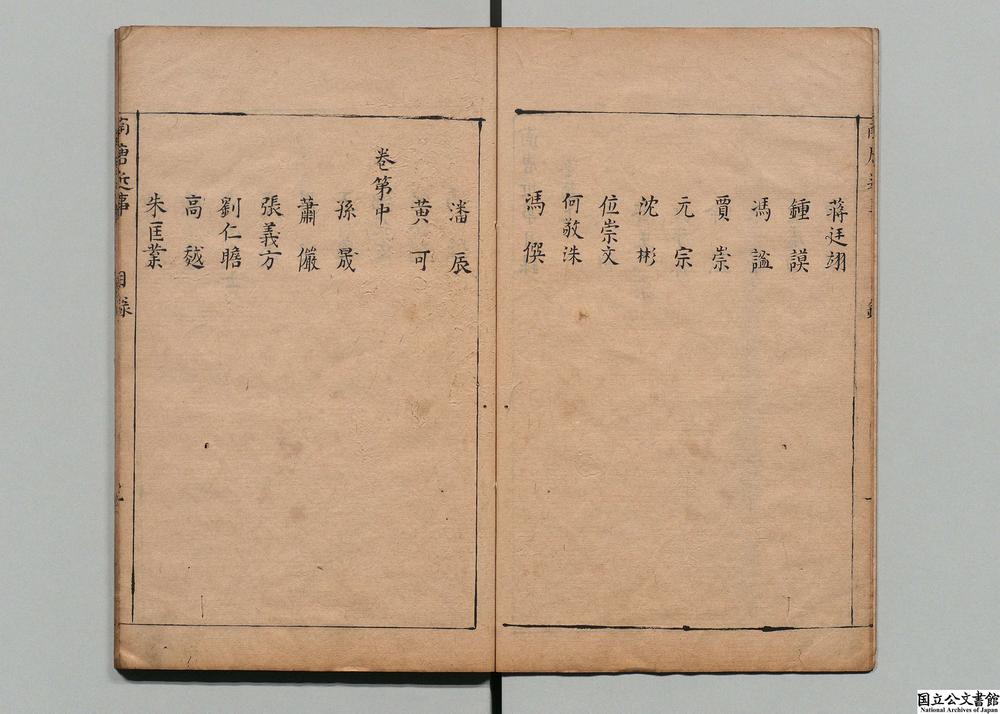 蔣廷翊
鍾謨
馮謐
賈崇
元宗
沈彬
位崇文
何敬洙
馮僎
潘扆
黄可
卷第中
孫晟
蕭儼
張義方
劉仁贍
高越
朱匡業
南唐近事 目録
国立公文書館
National Archives of Japan